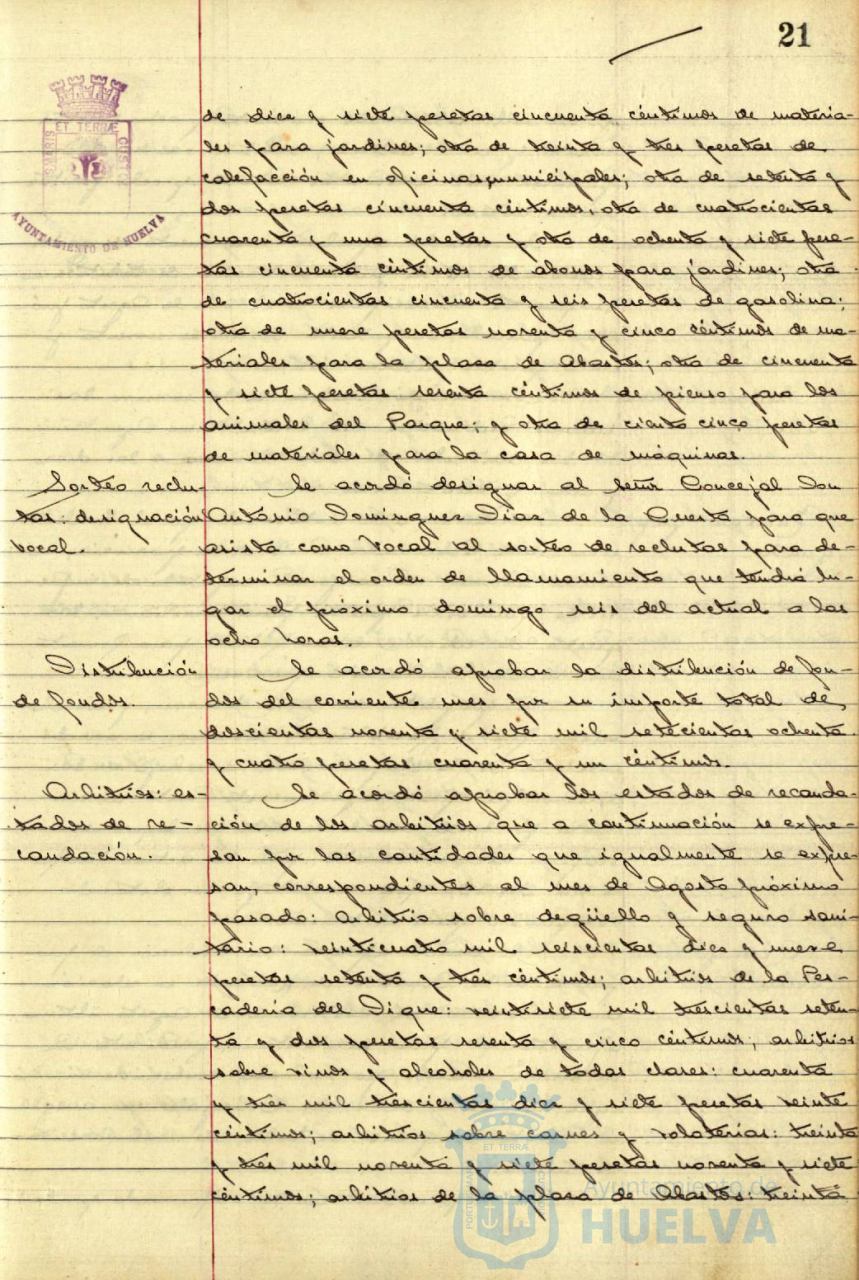 21
de diez y siete pesetas cincuenta céntimos de materia-
les para jardines; otra de treinta y tres pesetas de
calefacción en oficinas municipales; otra de setenta y
dos pesetas cincuenta céntimos, otra de cuatrocientas
cuarenta y una pesetas y otra de ochenta y siete pese-
tas cincuenta céntimos de abonos para jardines; otra
de cuatrocientas cincuenta y seis pesetas de gasolina;
otra de nueve pesetas noventa y cinco céntimos de ma-
teriales para la plaza de Abastos; otra de cincuenta
y siete pesetas sesenta céntimos de pienso para los
animales del Parque; y otra de ciento cinco pesetas
de materiales para la casa de máquinas.
Sorteo reclu-
tas: designación
vocal.
Se acordó designar al señor Concejal Don
Antonio Dominguez Diaz de la Cuesta para que
asista como Vocal al sorteo de reclutas para de-
terminar el orden de llamamiento que tendrá lu-
gar el próximo domingo seis del actual a las
ocho horas.
Distribución
de fondos.
Se acordó aprobar la distribución de fon-
dos del corriente mes por su importe total de
doscientas noventa y siete mil setecientas ochenta
y cuatro pesetas cuarenta y un céntimos.
Arbitrios: es-
tados de re-
caudación.
Se acordó aprobar los estados de recauda-
ción de los arbitrios que a continuación se expre-
san por las cantidades que igualmente se expre-
san, correspondientes al mes de Agosto próximo
pasado: arbitrio sobre degüello y seguro sani-
tario: veinticuatro mil seiscientas diez y nueve
pesetas setenta y tres céntimos; arbitrios de la Pes-
cadería del Dique: veintisiete mil trescientas seten-
ta y dos pesetas sesenta y cinco céntimos; arbitrios
sobre vinos y alcoholes de todas clases: cuarenta
y tres mil trescientas diez y siete pesetas veinte
céntimos; arbitrios sobre carnes y volaterías: treinta
y tres mil noventa y siete pesetas noventa y siete
céntimos; arbitrios de la plaza de Abastos: treinta
ET TERRÆ
AYUNTAMIENTO DE HUELVA
ET TERRÆ
Ayuntamiento de
HUELVA